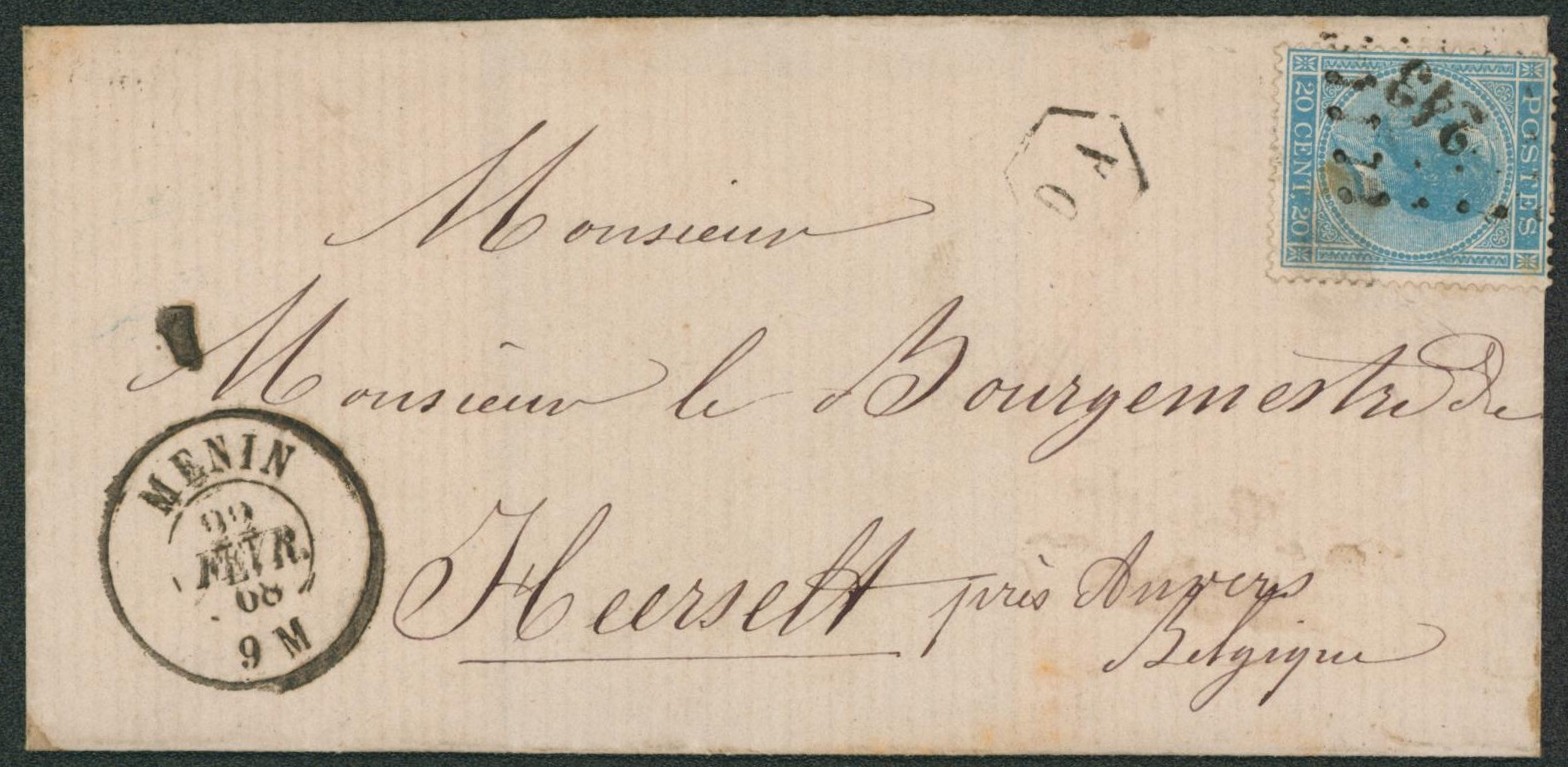 POSTES
20 CENT. 20
243
Monsieur
Monsieur le Bourgemestre de
Heerselt près Anvers
Belgique
MENIN
22
FEVR.
68
9 M